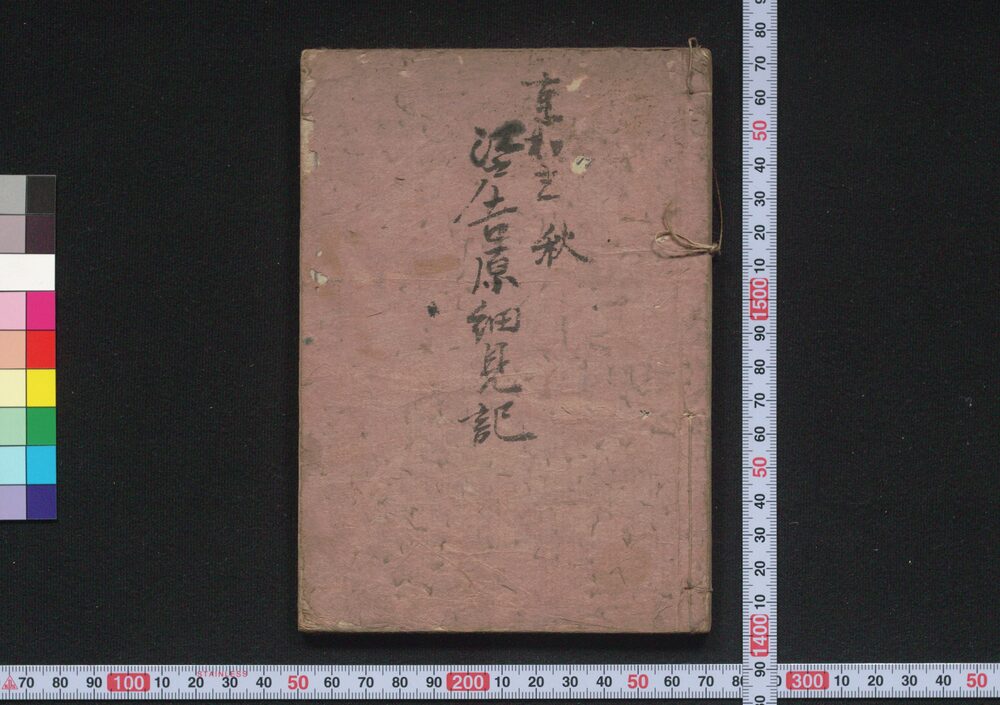 享和三 秋
江吉原細見記
70 80 90 100 10 20 30 40 50 60 70 80 90 200 10 20 30 40 50 60 70 300 10 20 30 40 50
STAINLESS
80 70 60 50 40 30 20 10 1500 90 80 70 60 50 40 30 20 10 1400 90 80